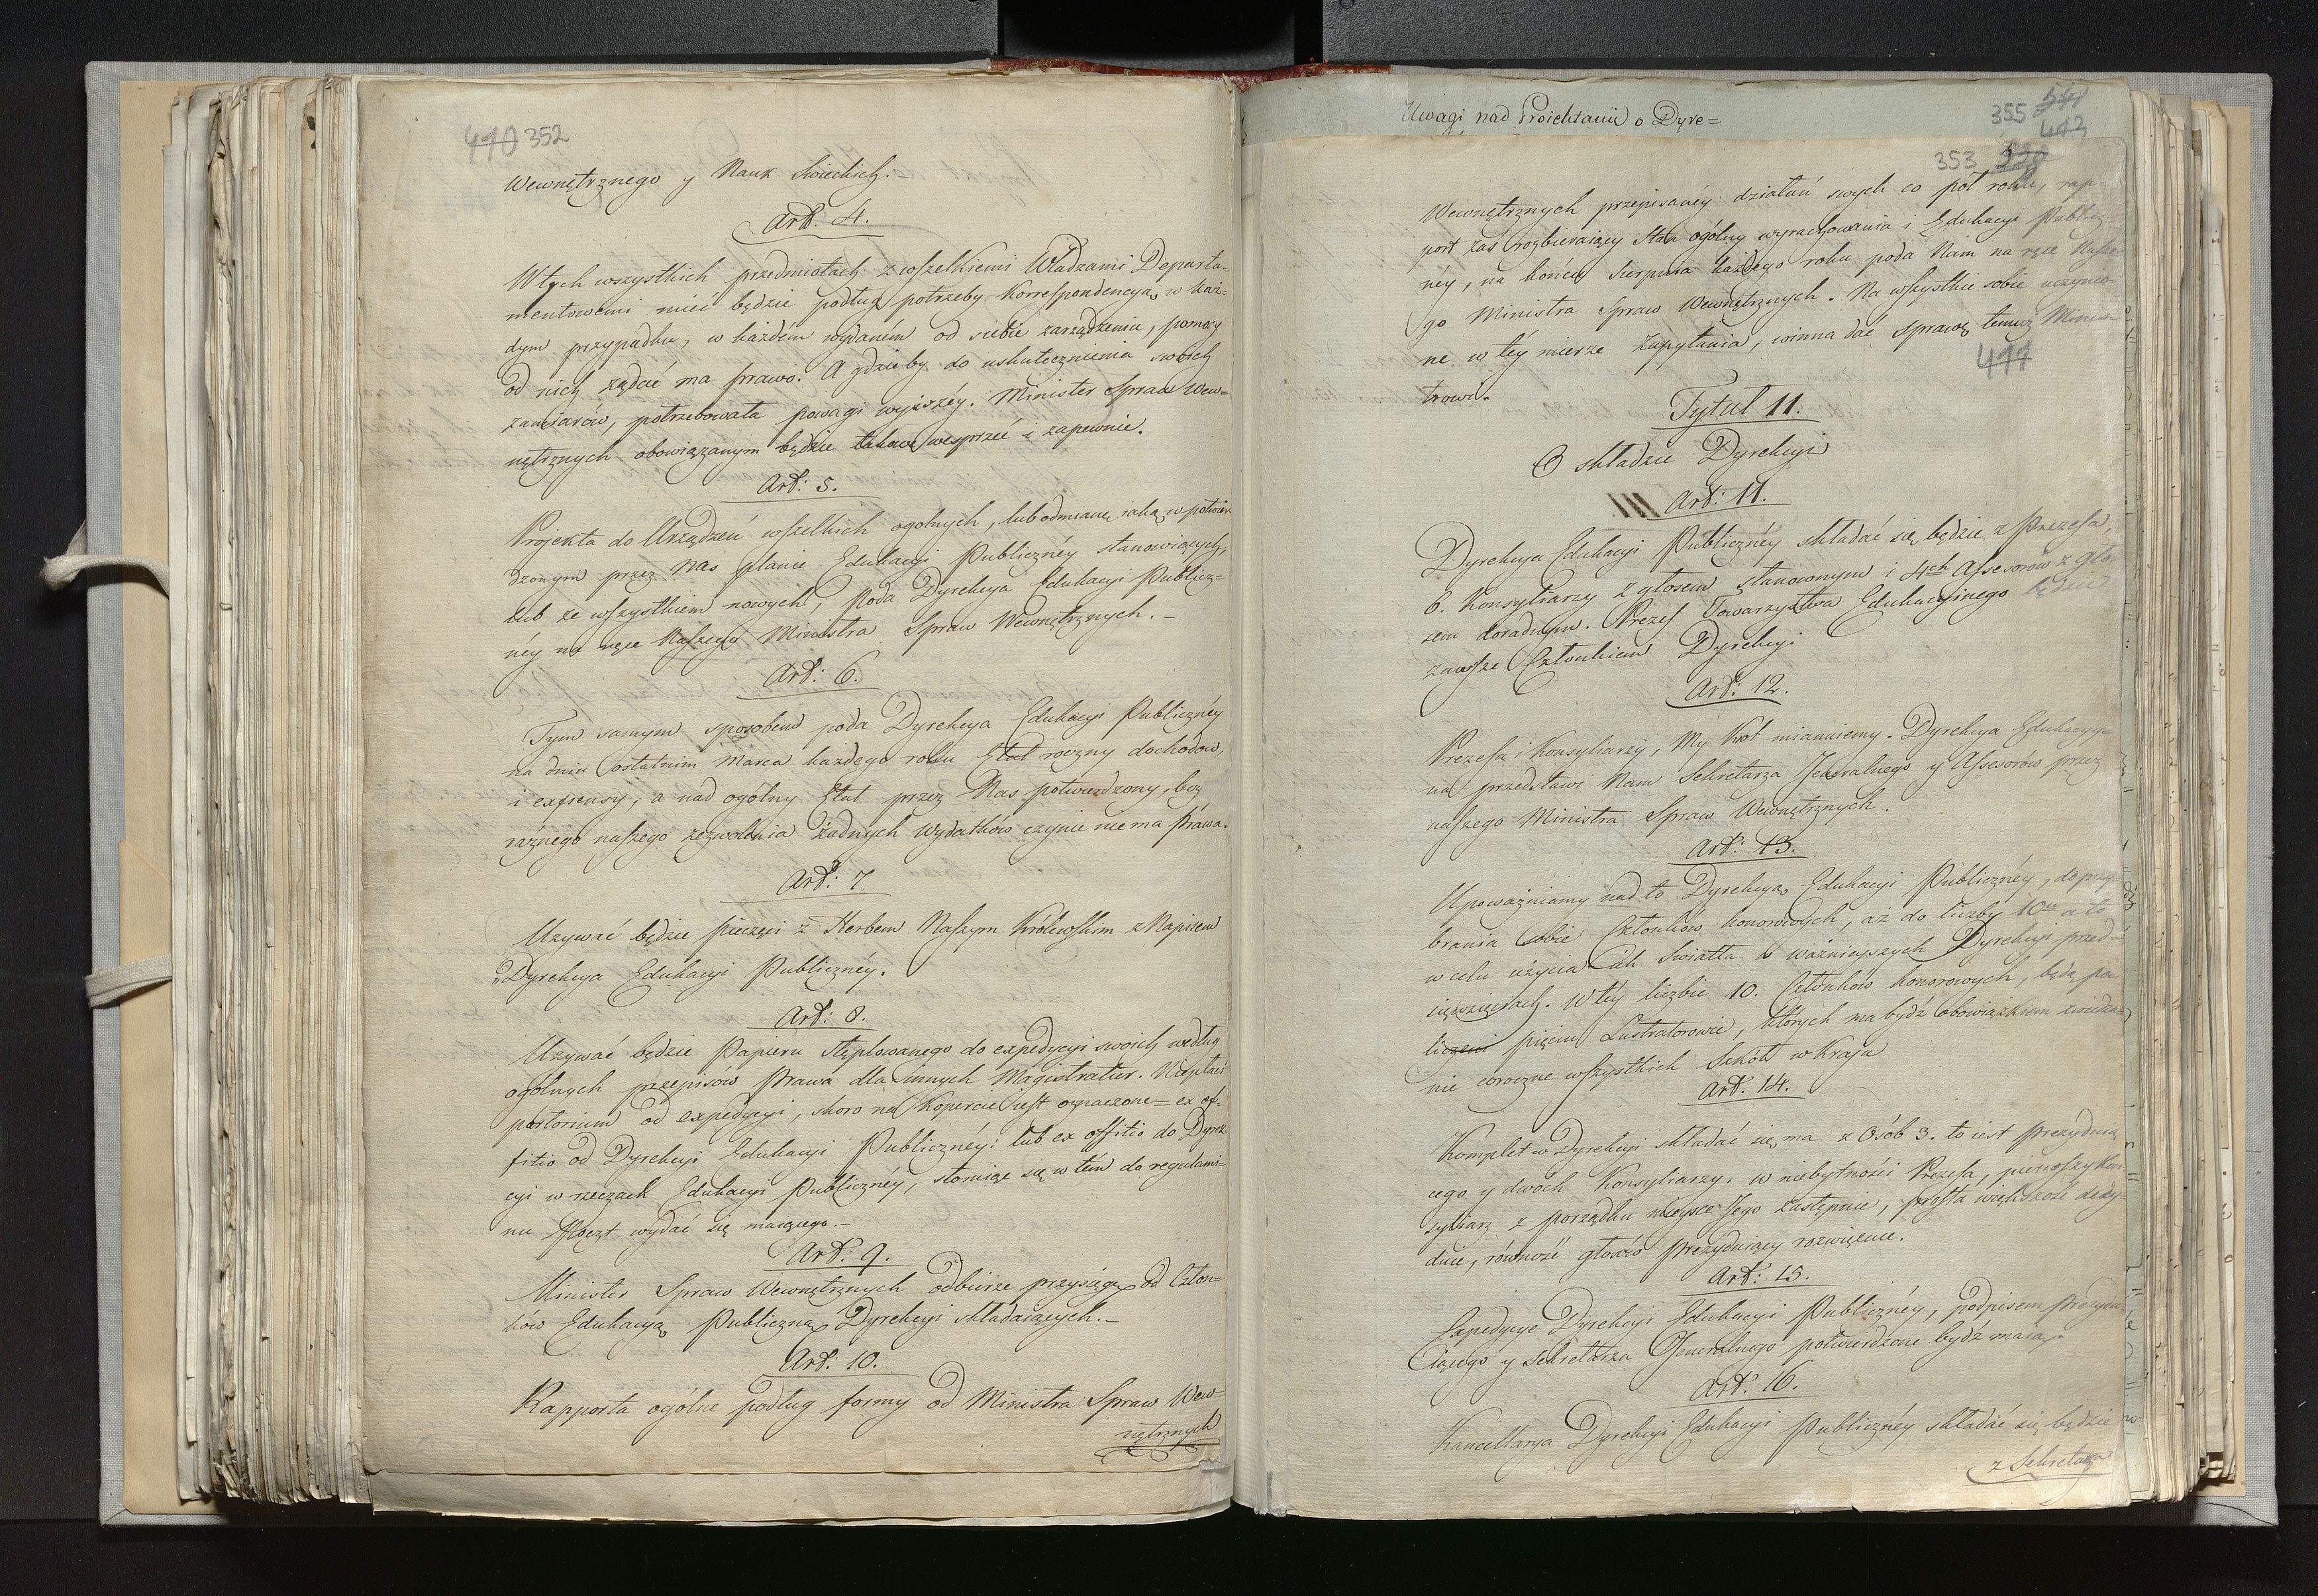 410 352
Wewnętrznego y Nauk Swieckich.–
Art. 4.
W tych wszystkich przedmiotach z wszelkiemi Władzami Departa-
mentowemi mieć będzie podług potrzeby Korrespondencyą, w Każ-
dym przypadku, w każdém wydaném od siebie zarządzeniu, pomocy
od nich żądać ma prawo. A gdzieby do uskutecznienia swoich
zamiarów, potrzebowała powagi wyższéy. Minister Spraw Wew=
nętrznych obowiązanym będzie takowe wesprzeć i zapewnić.
Art: 5.
Projekta do Urządzeń wszelkich ogolnych, lub odmianę iaką w potwier-
dzonym przez Nas planie Edukacyi Publicznéy stanowiących,
lub ze wszystkiem nowych, poda Dyrekcya Edukacyi Publicz-
néy na ręce Naszego Ministra Spraw Wewnętrznych.–
Art: 6.
Tym samym sposobem poda Dyrekcya Edukacyi Publicznéy
na dniu ostatnim Marca każdego roku Etat roczny dochodow,
i expensy, a nad ogólny Etat przez Nas potwierdzony, bez
raźnego naszego zezwolenia żadnych Wydatków czynić nie ma prawa.
Art: 7
Używać będzie pieczęci z Herbem Naszym Królewskim z Napisem
„Dyrekcya Edukacyi Publicznéy.
Art: 8.
Używać będzie Papieru stęplowanego do expedycyi swoich według
ogólnych przepisów Prawa dla innych Magistratur. Niepłaci
portorium od expedycyi, skoro na Kopercie iest oznaczone = ex of-
fitio od Dyrekcyi Edukacyi Publicznéy: lub ex offitio do Dyrek
cyi w rzeczach Edukacyi Publicznéy, stosuiąc się w tém do regulami-
nu Poczt wydać się maiącego.–
Art: 9.
Minister Spraw Wewnętrznych odbierze przysięgę od Człon=
ków Edukacyą Publiczną Dyrekcyi składaiących.–
Art: 10.
Rapporta ogólne podług formy od Ministra Spraw Wew=
nętrznych
Uwagi nad Proiektami o Dyre=
355
353
Wewnętrznych przepisanéy działań swych co pół roku, rap-
port zaś rozbieraiący stan ogólny wyrachowania i Edukacyi Publicz
néy, na końcu Sierpnia każdego roku poda Nam na ręce Nasze
go Ministra Spraw Wewnętrznych. Na wszystkie sobie uczynio-
ne w téy mierze Zapytania, winna dać sprawę temuż Minis
trowi.
411
Tytuł 11.
O składzie Dyrekcyi
Art: 11.
Dyrekcya Edukacyi Publicznéy składać się będzie z Prezesa,
6. Konsyliarzy z głosem stanownym i 4ch Assesorów z gło-
sem doradnym. Prezes Towarzystwa Edukacyinego będzie
zawsze Członkiem Dyrekcyi
Art: 12.
Prezesa i Konsyliarzy, My Król mianuiemy. Dyrekcya Edukacyy-
na przedstawi Nam Sekretarza Jeneralnego y Assesorów przez
naszego Ministra Spraw Wewnętrznych.
Art: 13.
Upoważniamy nad to Dyrekcyą Edukacyi Publicznéy, do przy-
brania sobie Członków honorowych, aż do liczby 10u a to
w celu użycia ich Światła w ważnieyszych Dyrekcyi przed-
sięwzięciach. W téy liczbie 10. Członków honorowych, będą po
liczeni pięciu Lustratorowie, których ma bydź obowiązkiem zwiedza-
nie coroczne wszystkich Szkół w Kraju
Art. 14.
Komplet w Dyrekcyi składać się ma z Osób 3. to iest prezyduią
cego y dwoch Konsyliarzy. w niebytności Prezesa, pierwszy Kon-
syliarz z porządku mieysce Jego zastępuie, prosta większość decy-
duie, równość głosów prezyduiący rozwięzuie.
Art: 15.
Expedycye Dyrekcyi Edukacyi Publicznéy, podpisem prezydu-
iącego y Sekretarza Jeneralnego potwierdzone bydź maią.
Art: 16.
Kancellarya Dyrekcyi Edukacyi Publicznéy składać się będzie
z Sekretarza